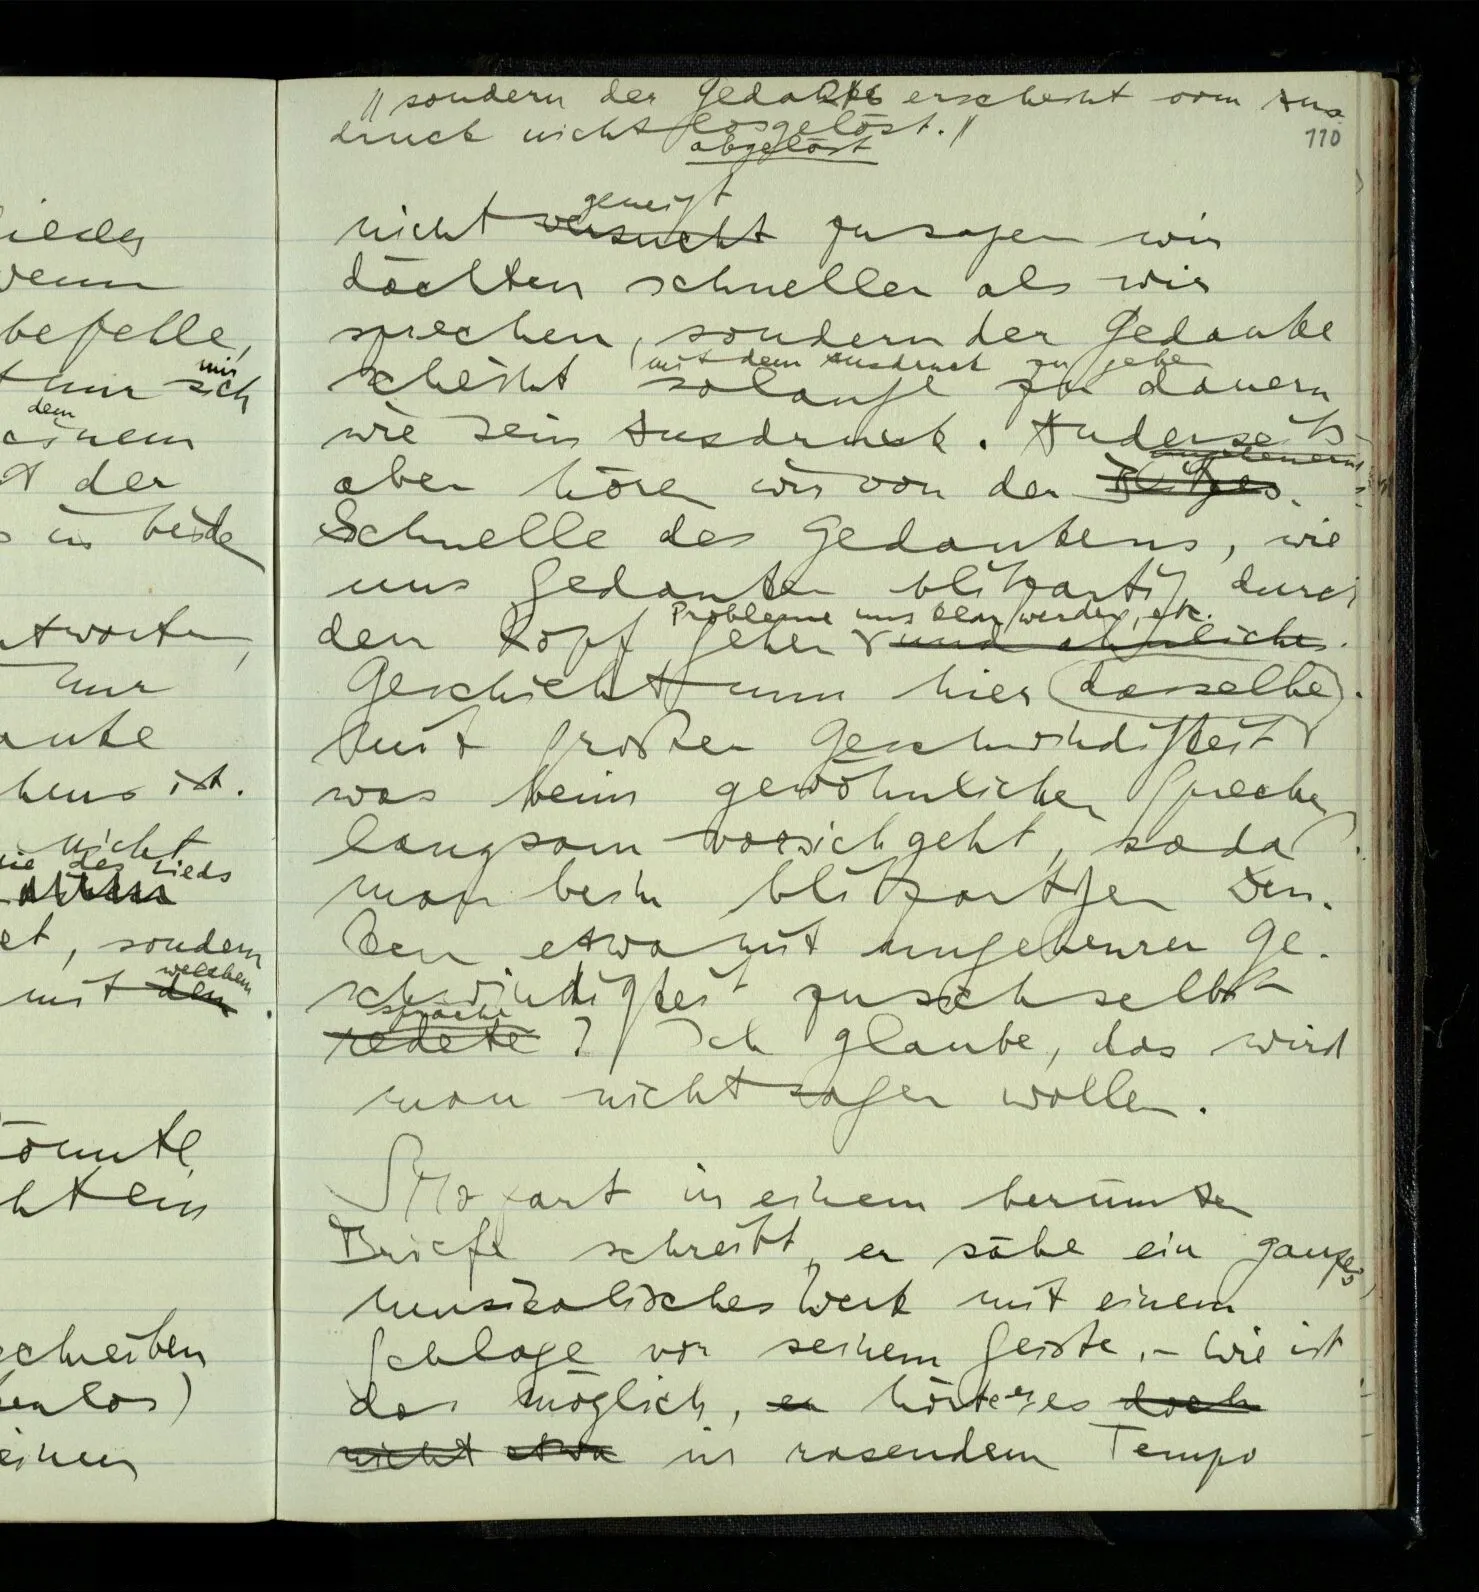 ieder
wenn
befehle,
mir
nur sich
dem
einem
der
in beide
ntworten,
nur
anke
hens ist.
nicht
wie des Lieds
et, sondern
welchem
mit dem
könnte
ht ein
schreiben
kenlos)
einen
// sondern der Gedanke erscheint vom Aus-
druck nicht losgelöst. //
abgelöst
110
geneigt
nicht versucht zu sagen wir
dächten schneller als wir
sprechen, sondern der Gedanke
(mit dem Ausdruck zu gehen
scheint solange zu dauern
wie sein Ausdruck. Anderseits
ungeheuern
aber hören wir von der Blitzes-
Schnelle des Gedankens, wie
uns Gedanken blitzartig durch
Probleme uns klar werden, etc.
den Kopf gehen und ähnliches.
Geschieht nun hier dasselbe
mit großer Geschwindigkeit
was beim gewöhnlichen Sprechen
langsam vorsichgeht, sodaß
man beim blitzartigen Den-
ken etwa mit ungeheurer Ge-
schwindigkeit zu sich selbst
spräche
redete? Ich glaube, das wird
man nicht sagen wollen.
S Mozart in einem berümten
Briefe schreibt, er sähe ein ganzes
musikalisches Werk mit einem
Schlage vor seinem Geiste, – wie ist
das möglich, er hörte er es doch
nicht etwa in rasendem Tempo